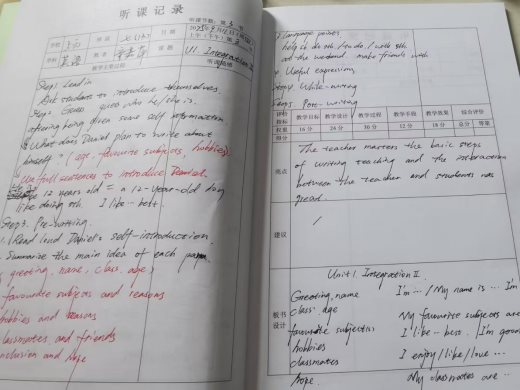 听课记录
听课节数: 第 节
学校
班级 七(12)
日期 2025年9月
上午(下午)第2
学科 英语
姓名
课题 U1. Integration
教学主要过程
听课随感
Step1 Lead in
Ask students to introduce themselves.
Step2 Guess who he/she is.
after being given some self information
What does Daniel plan to write about
himself? (age, favourite subjects, hobbies)
Use full sentences to introduce Daniel.
12 years old = a 12-year-old boy
like doing sth I like … best.
Step3. Pre-writing.
1. Read Daniel's self-introduction.
Summarize the main idea of each
greeting, name, class, age
favourite subjects and reasons
hobbies and reasons
classmates and friends
conclusion and hope
Language points.
help sb do sth / to do / with sth
at the weekend make friends with
Useful expressions
Step4 White-writing
Step5. Post-writing
评价指标 教学目标 教学设计 教学过程 教学手段 教学效果 综合评价
权重 16分 24分 30分 12分 18分 总分 等第
得分
亮点
The teacher masters the basic steps
of writing teaching and the interaction
between the teacher and students was
great.
建议
/
板书设计
Unit1 Integration II.
Greeting, name I'm … / My name is … I'm
class. age My favourite subjects are
favourite subjects I like … best. I'm good
hobbies I enjoy/like/love …
classmates My classmates are …
hope.